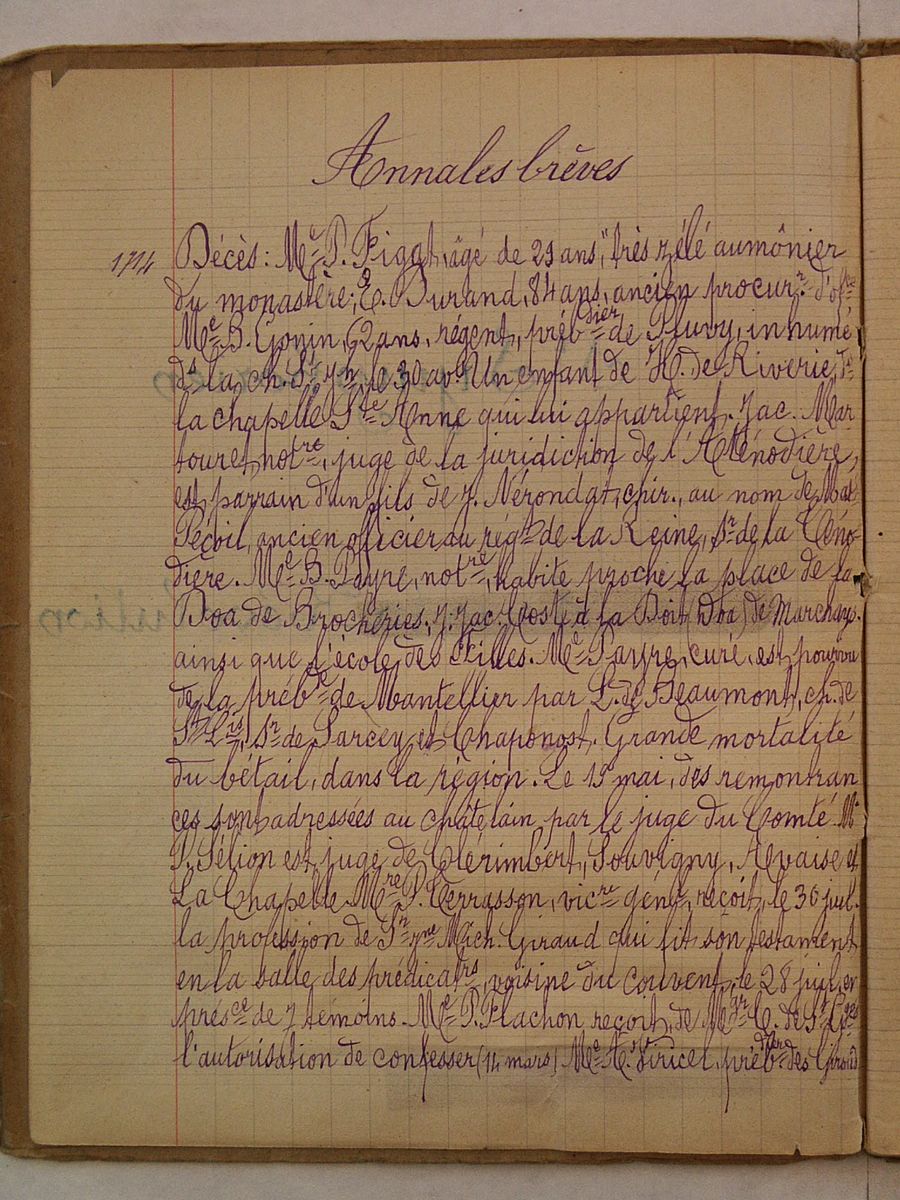 Annales brèves
1714 Décès: Me P. Figat, âgé de 29 ans, "très zélé aumônier
du monastère; E. Durand, 84 ans, ancien procurr d'offe
Me B. Gonin, 62 ans, régent, prébdier de Pluvy, inhumé
ds la ch. St J n, le 30 av. Un enfant de H. de Riverie, ds
la chapelle Ste Anne qui lui appartient. Jac. Mar
touret, notre, juge de la juridiction de l'Aténodière,
est parrain d'un fils de J. Nérondat, chir., au nom de Mat
Pécoil, ancien officier au régt de la Reine, Sr de la Téno-
dière. Me B. Payre, notre, habite proche la place de la
Boa de Brocheries, J. Jac. Coste à la Boit (Doa) de Marchans.
ainsi que l'école des filles. Me Payre, curé, est pourvu
de la prébde de Mantellier par L. de Beaumont, ch. de
St Lis, Sr de Sarcey et Chaponost. Grande mortalité
du bétail, dans la région. Le 15 mai, des remontran
ces sont adressées au châtelain par le juge du Comté. Me
P. Sélion est juge de Clérimbert, Souvigny, Avaise et
La Chapelle. Mre P. Terrasson, vicre génr, reçoit, le 30 juil.
la profession de Sr yne Mich. Giraud qui fit son testament
en la salle des prédicatrs, voisine du couvent, le 28 juil, en
présce de 7 témoins. Me P. Flachon reçoit, de Mgr C. de St Ges
l'autorisation de confesser (14 mars) Me A. Viricel, prébdier des Giroud